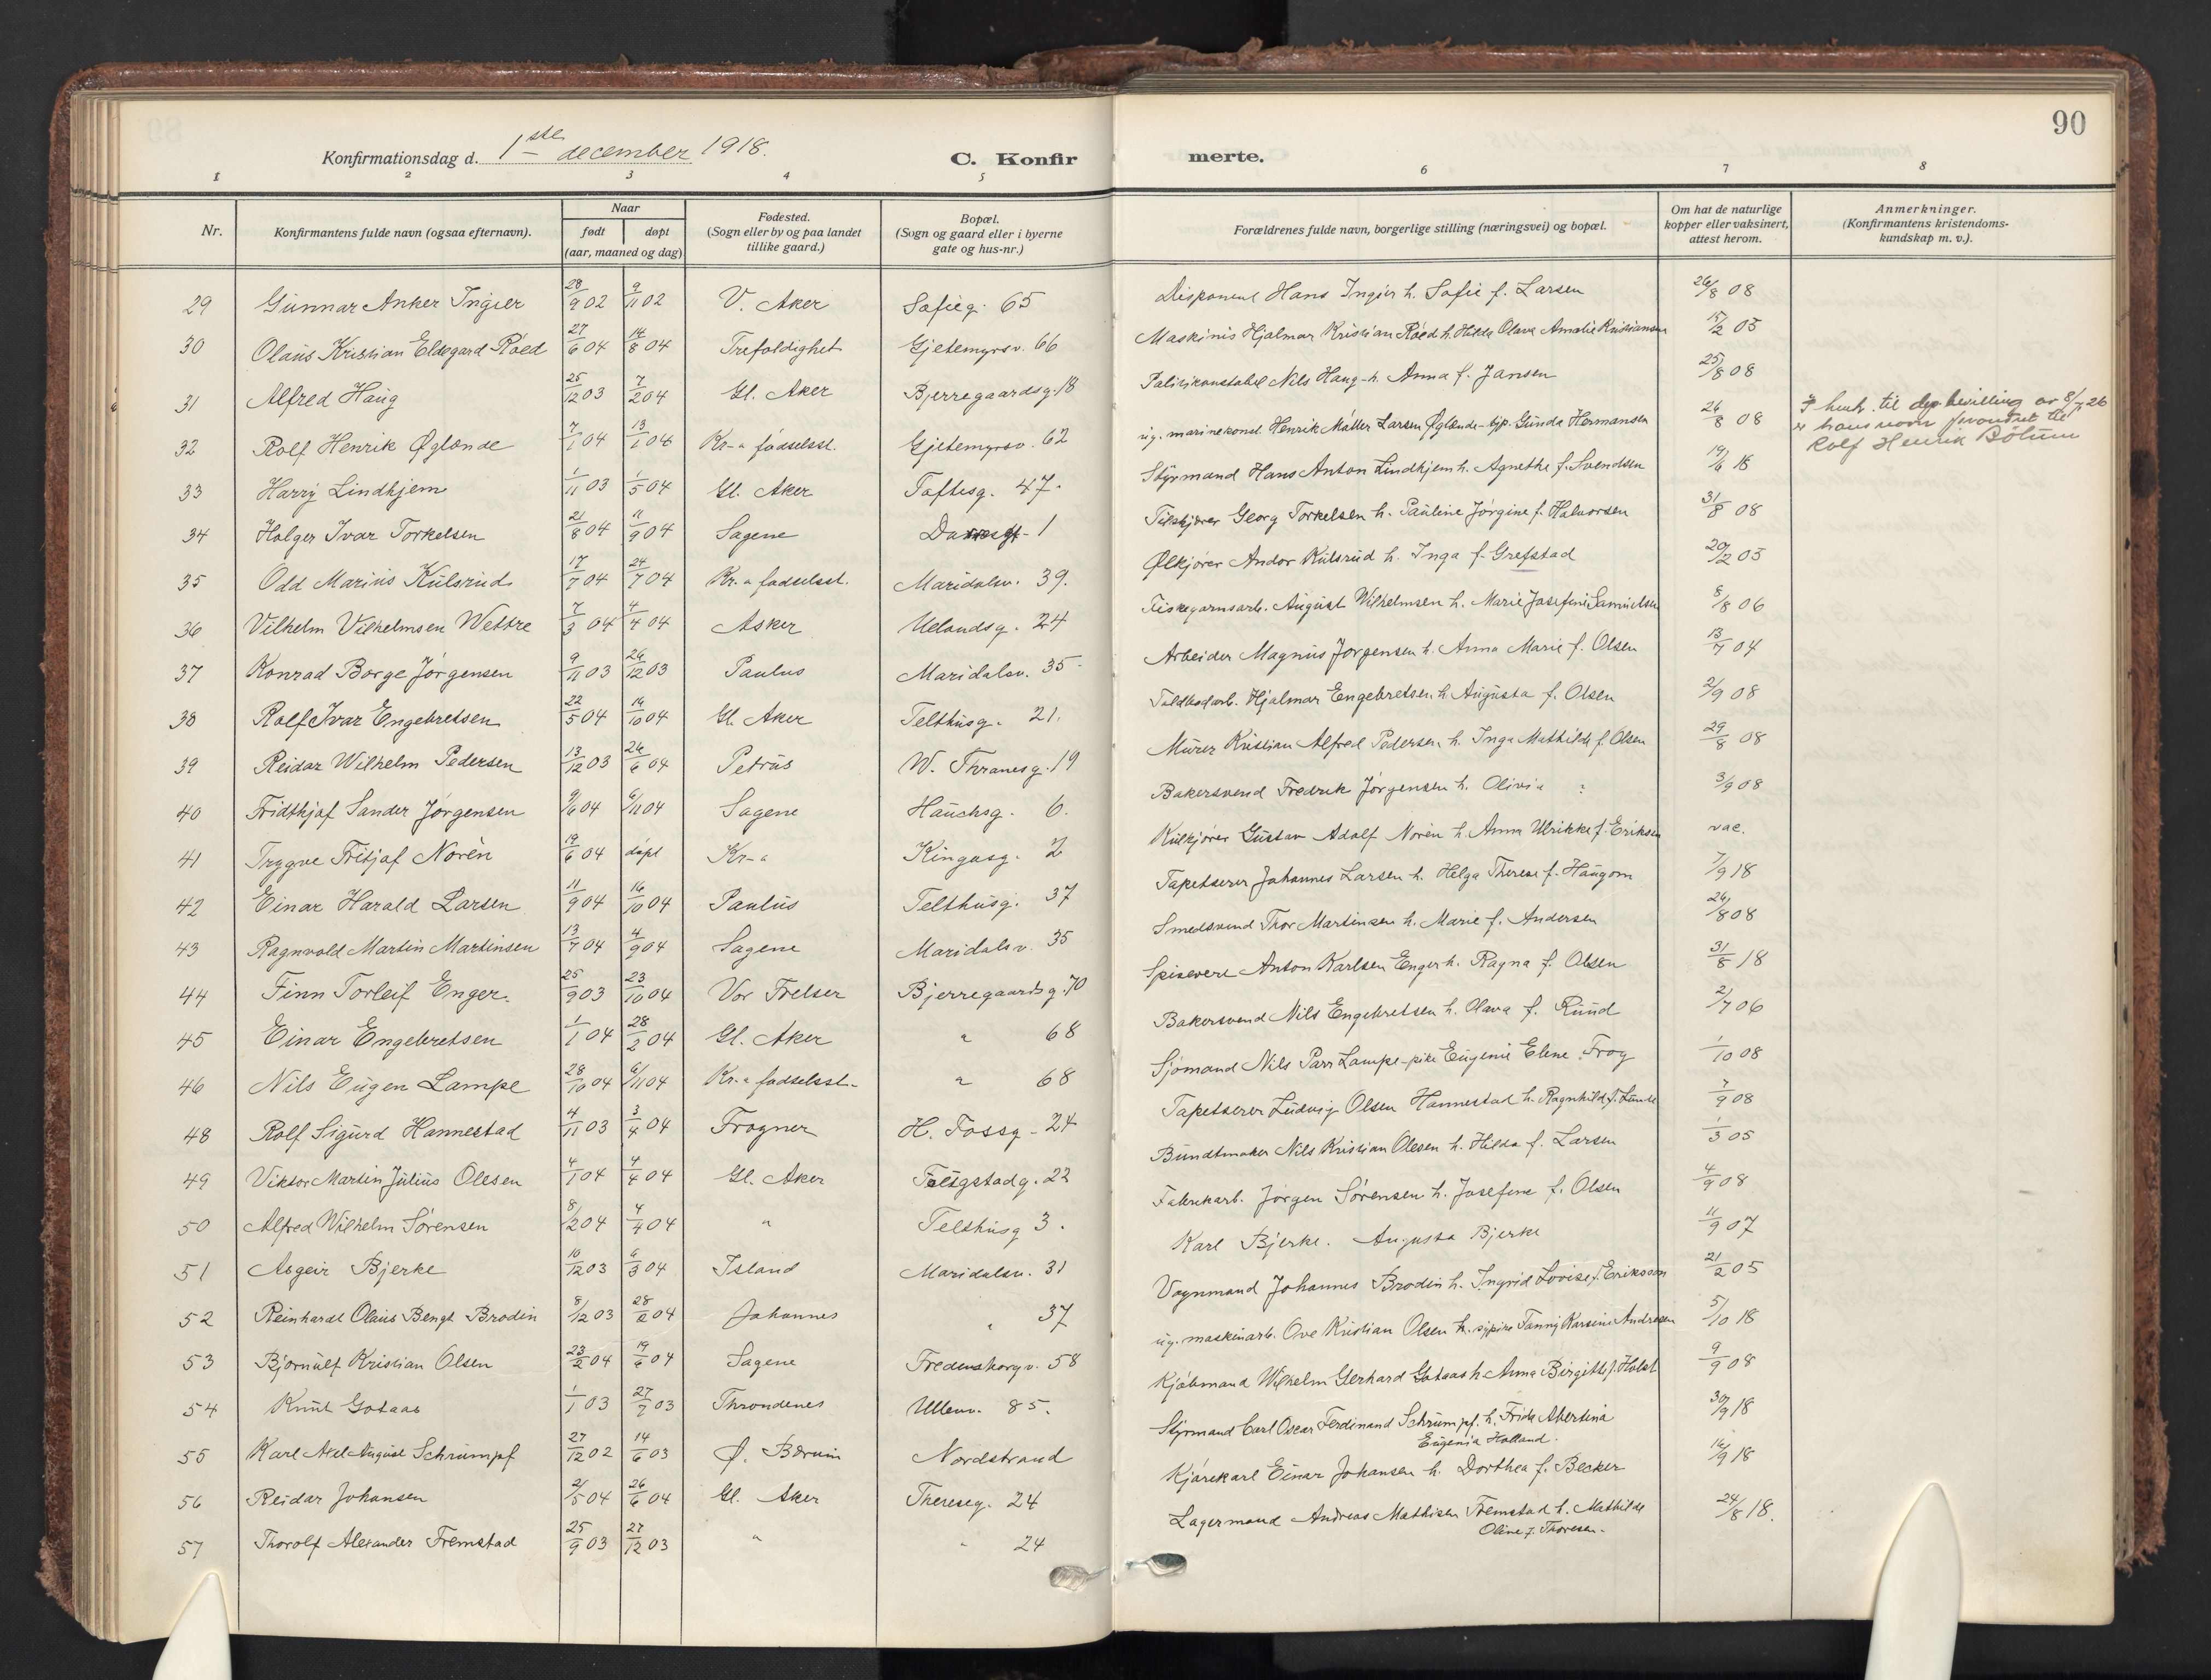 90
Konfirmationsdag d. 1ste december 1918.
C. Konfirmerte.
1 2 3 4 5 6 7 8
Nr.
Konfirmantens fulde navn (ogsaa efternavn).
Naar
født døpt
(aar, maaned og dag)
Fødested.
(Sogn eller by og paa landet
tillike gaard.)
Bopæl.
(Sogn og gaard eller i byerne
gate og hus-nr.)
Forældrenes fulde navn, borgerlige stilling (næringsvei) og bopæl.
Om hat de naturlige
kopper eller vaksinert,
attest herom.
Anmerkninger.
(Konfirmantens kristendoms-
kundskap m. v.).
29 Gunnar Anker Ingier 28/9 02 9/11 02 V. Aker Sofieg. 65 Disponent Hans Ingier h. Sofie f. Larsen 26/8 08
30 Olaus Kristian Eldegard Røed 27/6 04 14/8 04 Trefoldighet Gjetemyrsv. 66 Maskinis Hjalmar Kristian Røed h. Hilda Olava Amalie Kristiansen 15/2 05
31 Alfred Haug 25/12 03 7/2 04 Gl. Aker Bjerregaardsg. 18 Politikonstabel Nils Haug h. Anna f. Jansen 25/8 08
32 Rolf Henrik Øglænde 7/1 04 13/1 04 Kr-a fødselsst. Gjetemyrsv. 62 ug. marinekonst Henrik Møller Larsen Øglænde - Gunda Hermansen 26/8 08
I henh. til bevilling av 8/7 26
er hans navn forandret til
Rolf Henrik Bølum
33 Harry Lindhjem 1/11 03 1/5 04 Gl. Aker Toftesg. 47. Styrmand Hans Anton Lindhjem h. Agnethe f. Svendsen 19/6 18
34 Holger Ivar Torkelsen 21/8 04 11/9 04 Sagene - 1 Georg Torkelsen h. Pauline Jørgine f. Halvorsen 31/8 08
35 Odd Marius Kulsrud 17/7 04 24/7 04 Kr.a fødselsst. Maridalsv. 39. Ølkjører Andor Kulsrud h. Inga f. Grefstad 20/2 05
36 Vilhelm Vilhelmsen Wettre 7/3 04 4/4 04 Asker Uelandsg. 24 Fiskegarnsarb. August Wilhelmsen h. Marie Josefine Samuelsen 8/8 06
37 Konrad Borge Jørgensen 9/11 03 26/12 03 Paulus Maridalsv. 35. Arbeider Magnus Jørgensen h. Anna Marie f. Olsen 13/7 04
38 Rolf Ivar Engebretsen 22/5 04 14/10 04 Gl. Aker Telthusg. 21. Hjalmar Engebretsen h. Augusta f. Olsen 2/9 08
39 Reidar Wilhelm Pedersen 13/12 03 26/6 04 Petrus W. Thranesg. 19 Murer Kristian Alfred Pedersen h. Inga Mathilde f. Olsen 29/8 08
40 Fridthjof Sander Jørgensen 9/6 04 6/11 04 Sagene Hauchsg. 6. Bakersvend Fredrik Jørgensen h. Olivia 3/9 08
41 Trygve Fritjof Norèn 19/6 04 døpt Kr-a Kingosg. 2 Kulkjører Gustav Adolf Norèn h. Anna Ulrikke f. Eriksen vac.
42 Einar Harald Larsen 11/9 04 16/10 04 Paulus Telthusg. 37 Tapetserer Johannes Larsen h. Helga Therese f. Haugom 7/9 18
43 Ragnvald Martin Martinsen 13/7 04 4/9 04 Sagene Maridalsv. 35 Smedsvend Thor Martinsen h. Marie f. Andersen 26/8 08
44 Finn Torleif Enger. 25/9 03 23/10 04 Vor Frelser Bjerregaardsg. 70 Spisevert Anton Karlsen Enger h. Ragna f. Olsen 31/8 18
45 Einar Engebretsen 1/1 04 28/2 04 Gl. Aker " 68 Bakersvend Nils Engebretsen h. Olava f. Ruud 2/7 06
46 Nils Eugen Lampe 28/10 04 6/11 04 Kr-a fødselsst. " 68 Sjømand Nils Parr Lampe - pike Eugenie Elene Frog 1/10 08
48 Rolf Sigurd Hannestad 4/11 03 3/4 04 Frogner H. Fossg - 24 Tapetserer Ludvig Olsen Hannestad h. Ragnhild f. Lunde 7/9 08
49 Viktor Martin Julius Olesen 4/1 04 4/4 04 Gl. Aker Falgstadg. 22 Bundtmaker Nils Kristian Olesen h. Hilda f. Larsen 1/3 05
50 Alfred Wilhelm Sørensen 8/2 04 4/4 04 " Telthusg 3. Fabrikarb. Jørgen Sørensen h. Josefine f. Olsen 4/9 08
51 Asgeir Bjerke 10/12 03 6/3 04 Island Maridalsv. 31 Karl Bjerke. Augusta Bjerke 11/9 07
52 Reinhardt Olaus Bengt Brodin 8/12 03 28/2 04 Johannes " 37 Vognmand Johannes Brodin h. Ingrid Lovise f. Eriksson 21/2 05
53 Bjørnulf Kristian Olsen 23/2 04 19/6 04 Sagene Fredensborgv. 58 ug. maskinarb. Ove Kristian Olsen h. sypike Fanny Karsine Andresen 5/10 18
54 Knut Gotaas 1/1 03 27/7 03 Throndenes Ullenv. 85. Kjøbmand Wilhelm Gerhard Gotaas h. Anna Birgitte f. Holst 9/9 08
55 Karl Axel August Schrumpf 27/12 02 14/6 03 Ø. Bærum Nordstrand Styrmand Carl Oscar Ferdinand Schrumpf. h. Frida Albertina
Eugenia Holland. 30/9 18
56 Reidar Johansen 2/5 04 26/6 04 Gl. Aker Thereseg. 24 Kjørekarl Einar Johansen h. Dorthea f. Becker 16/9 18
57 Thorolf Alexander Fremstad 25/9 03 27/12 03 " " 24 Lagermand Andreas Mathisen Fremstad h. Mathilde
Oline f. Thoresen. 24/8 18.